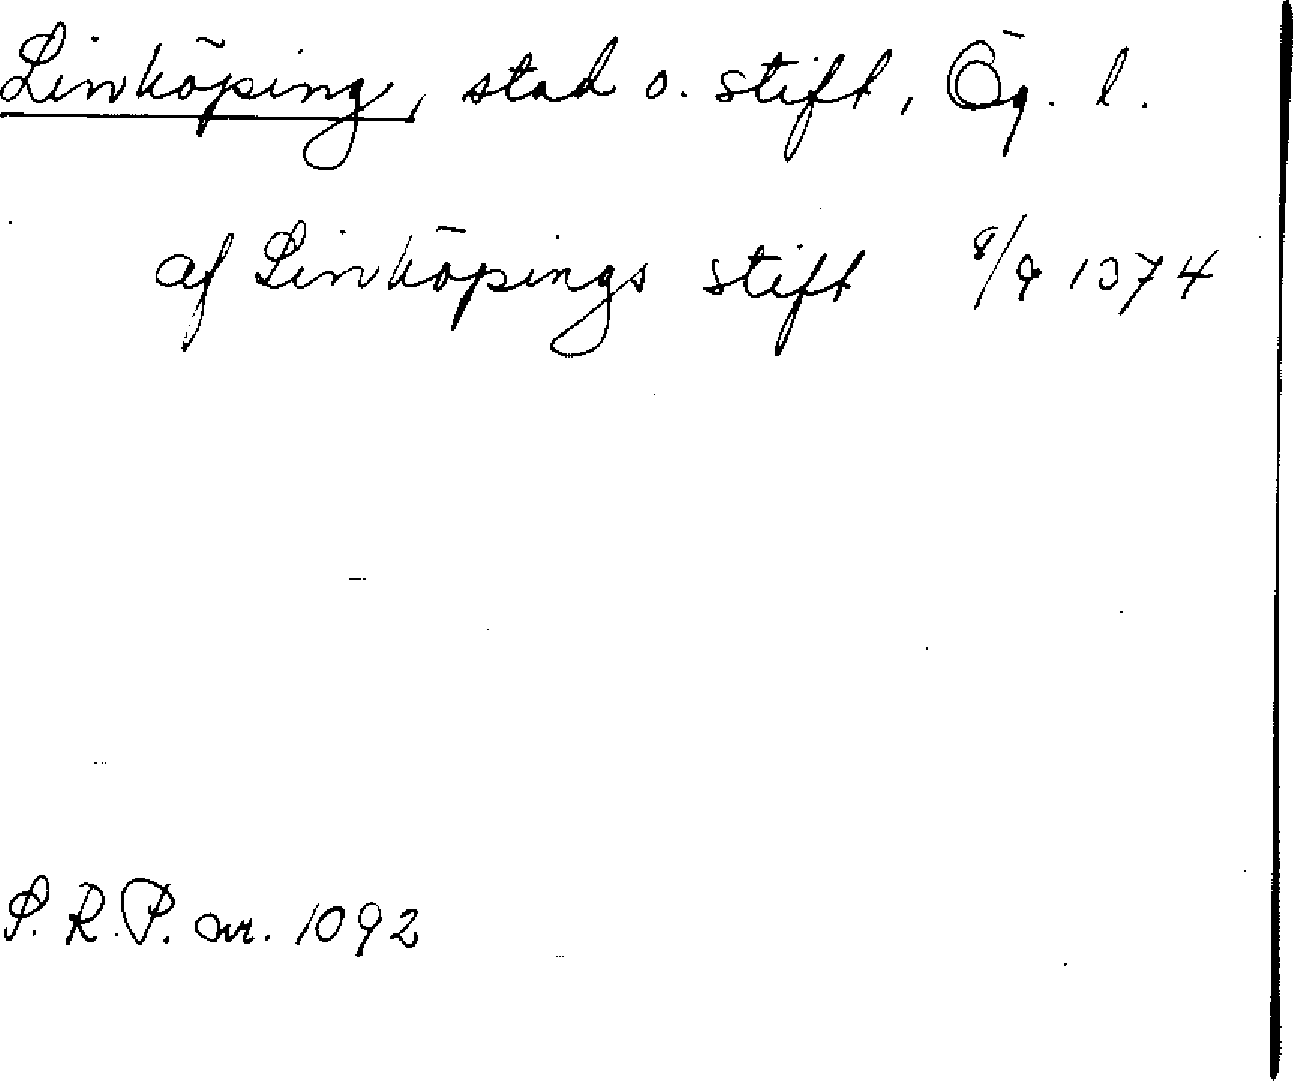 Linköping, stad o. stift, Ög. l.
af Linköpings stift 8/9 1374
S. R. P. nr. 1092